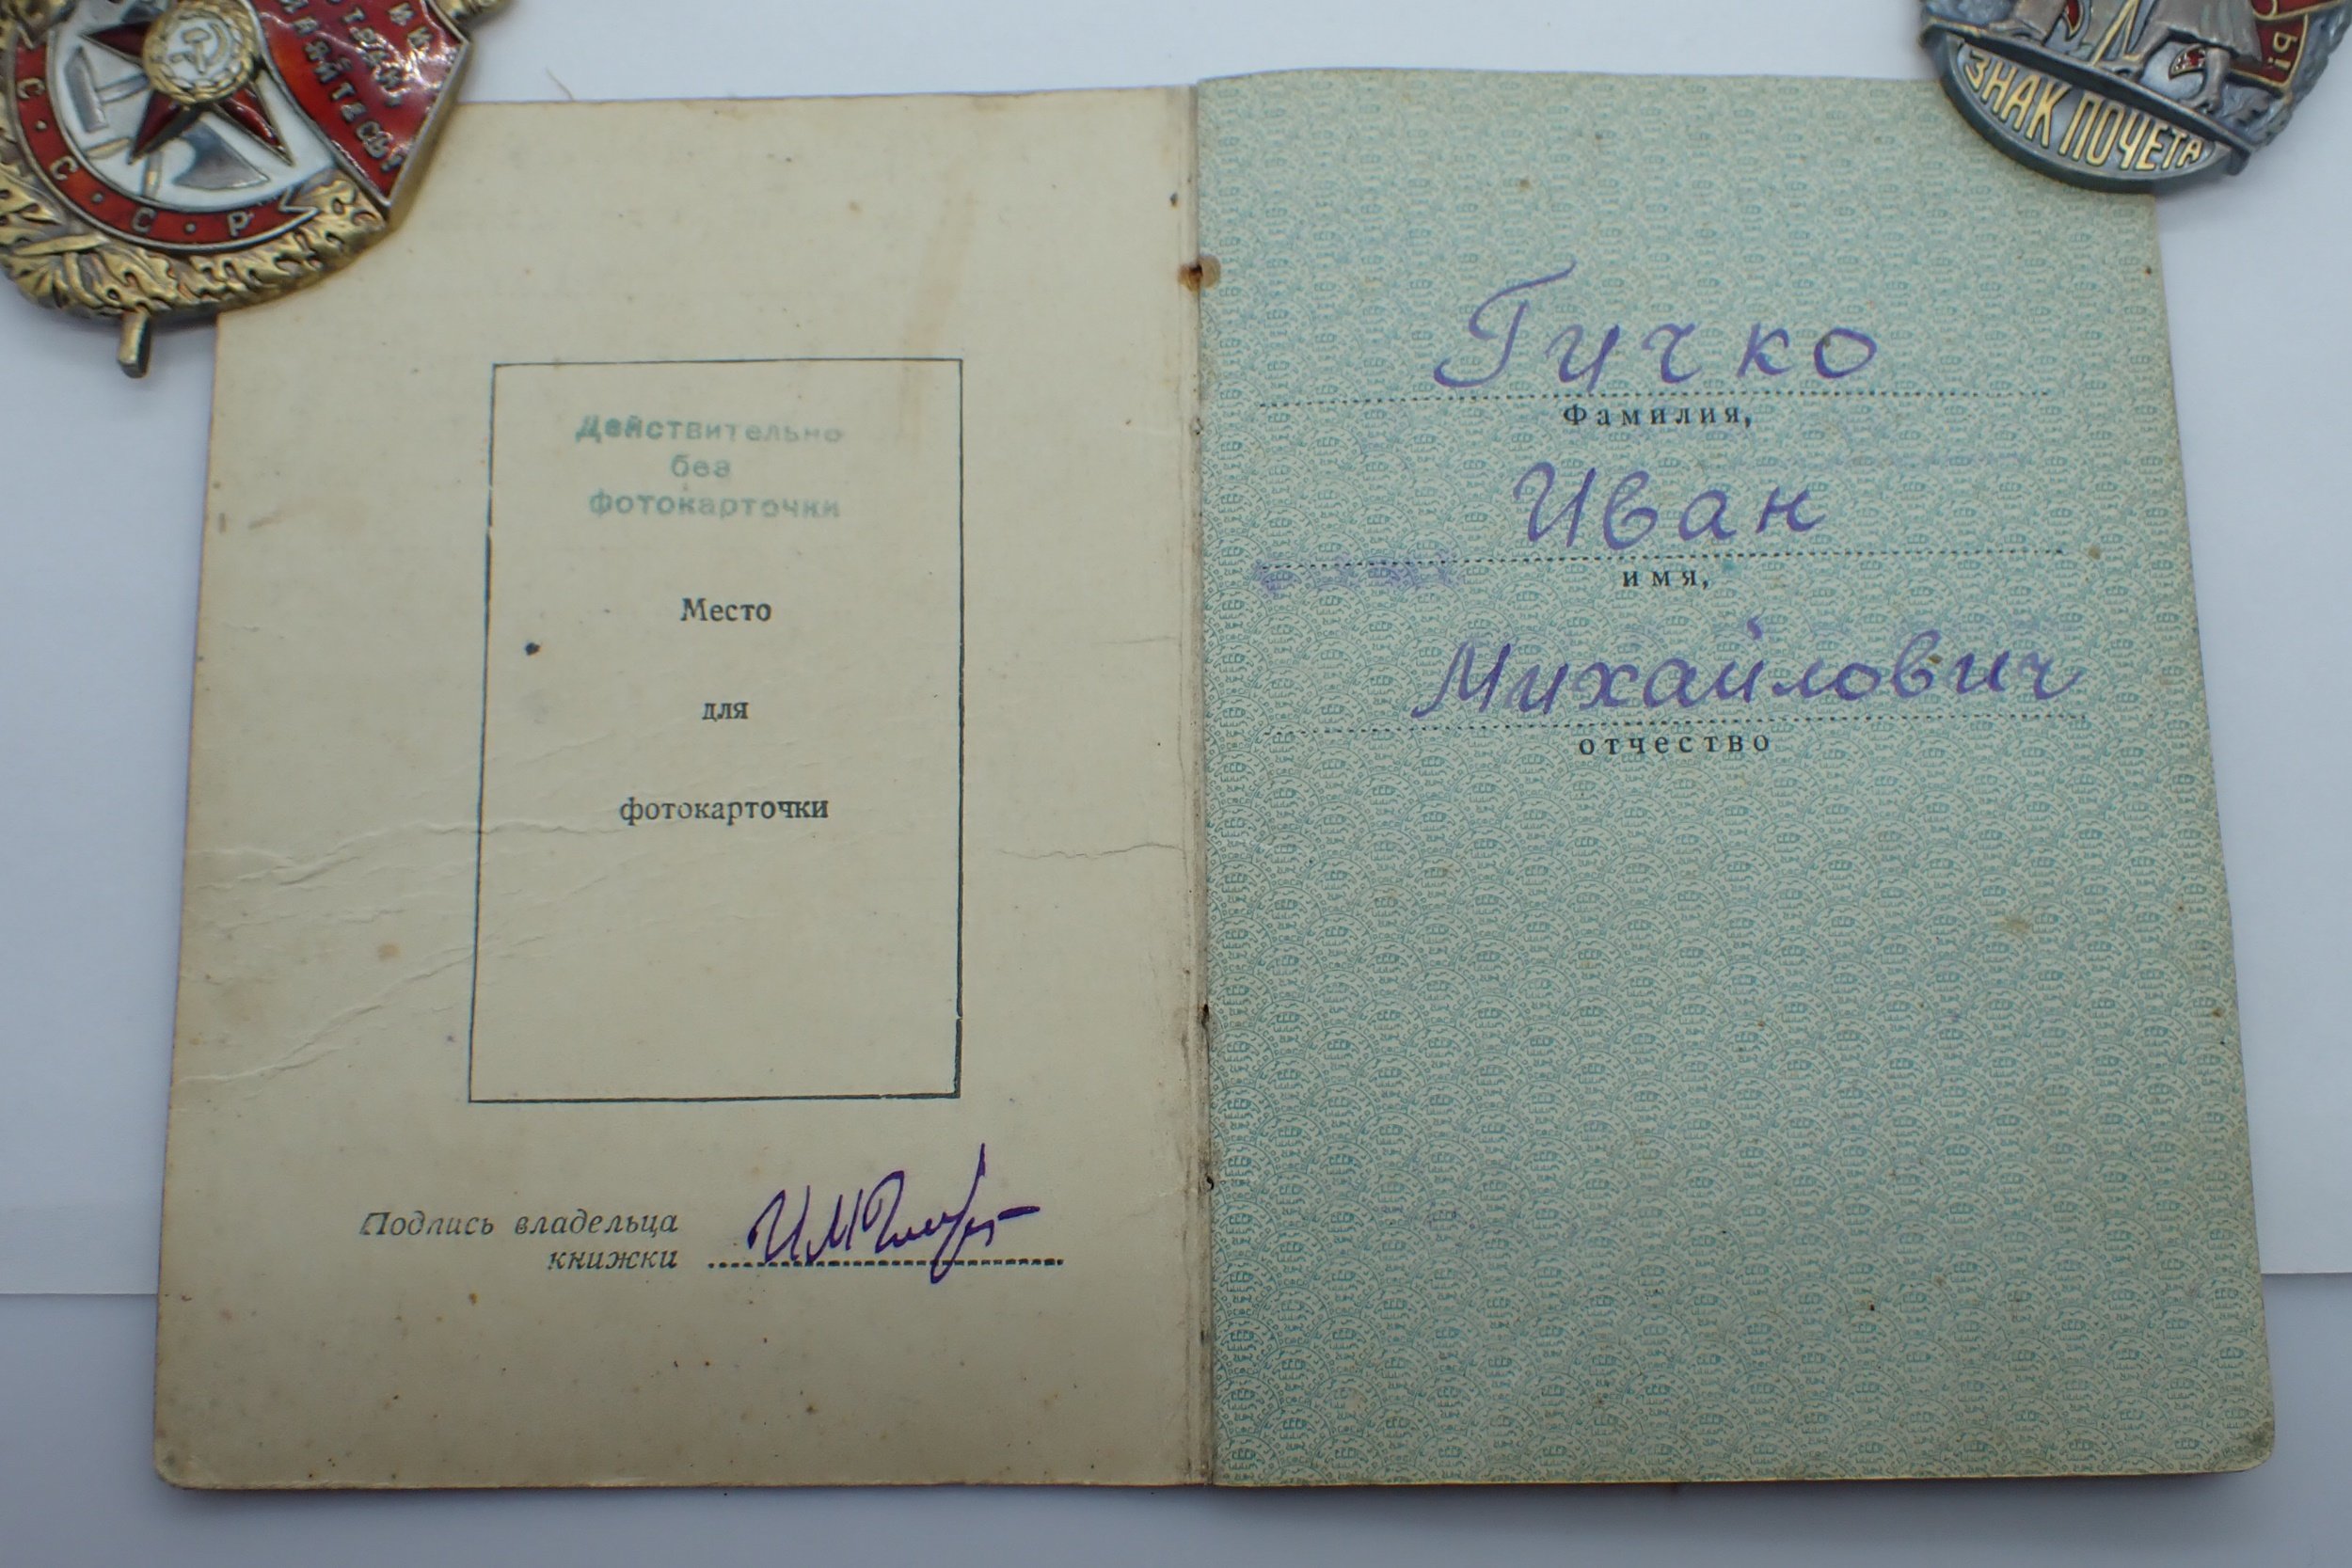 С С С Р
ЗНАК ПОЧЕТА
Действительно
без
фотокарточки
Место
для
фотокарточки
Подпись владельца
книжки
Гичко
Фамилия,
Иван
имя,
Михайлович
отчество